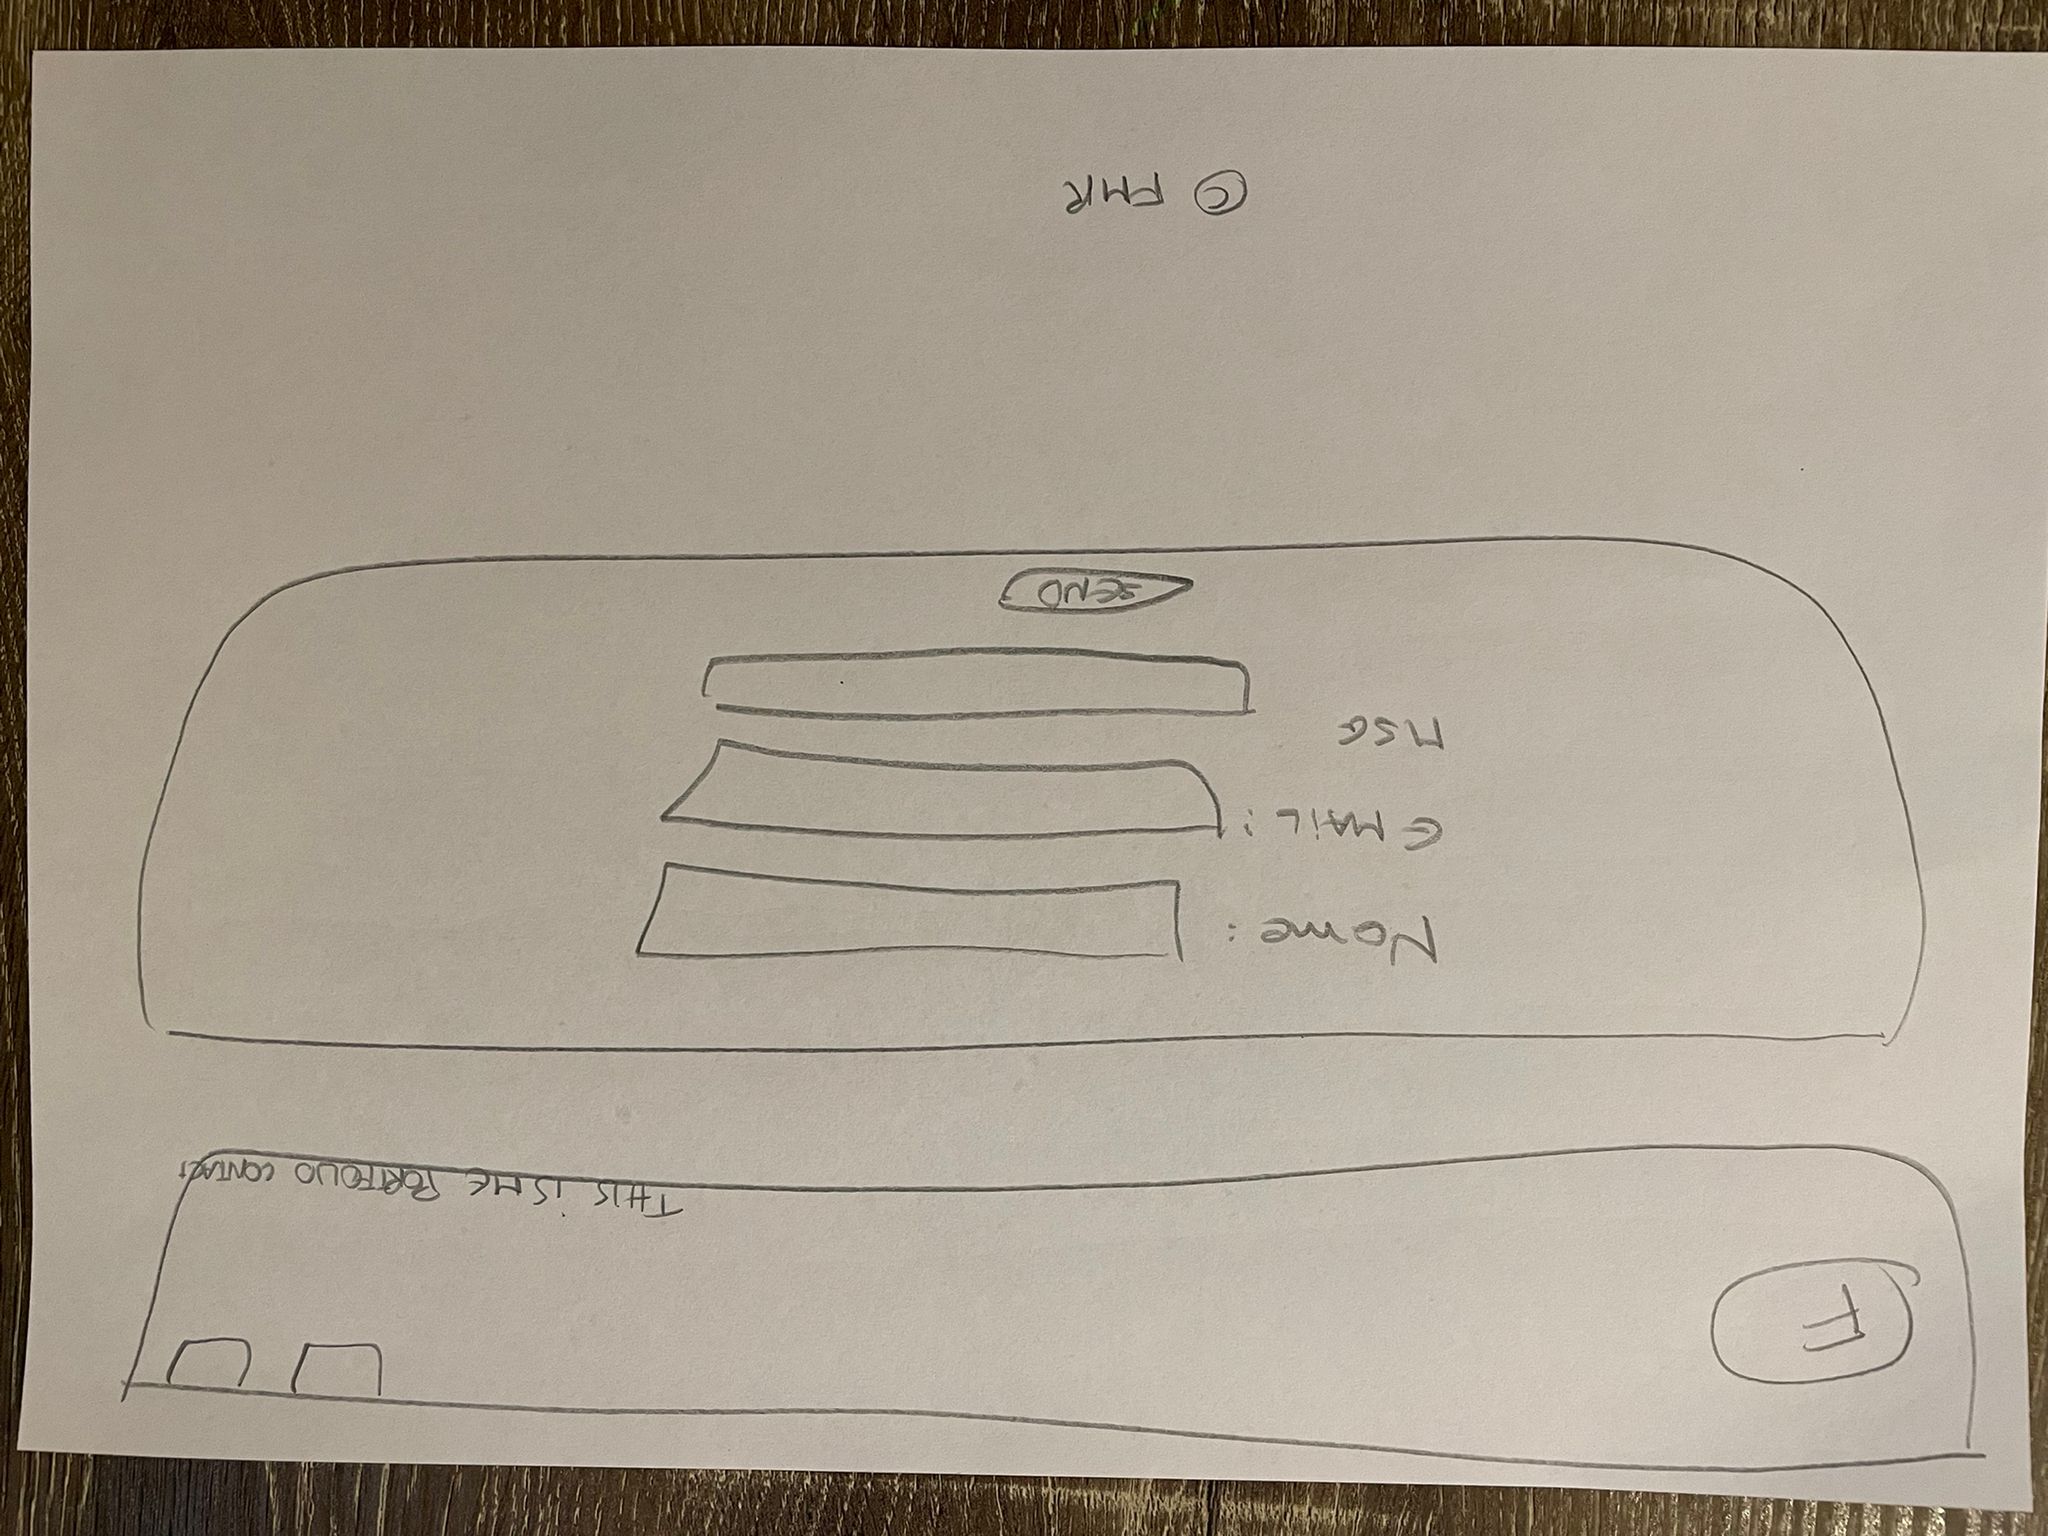 F
THIS IS ME PORTFOLIO CONTACT
Name:
EMAIL:
MSG
SEND
© FMR